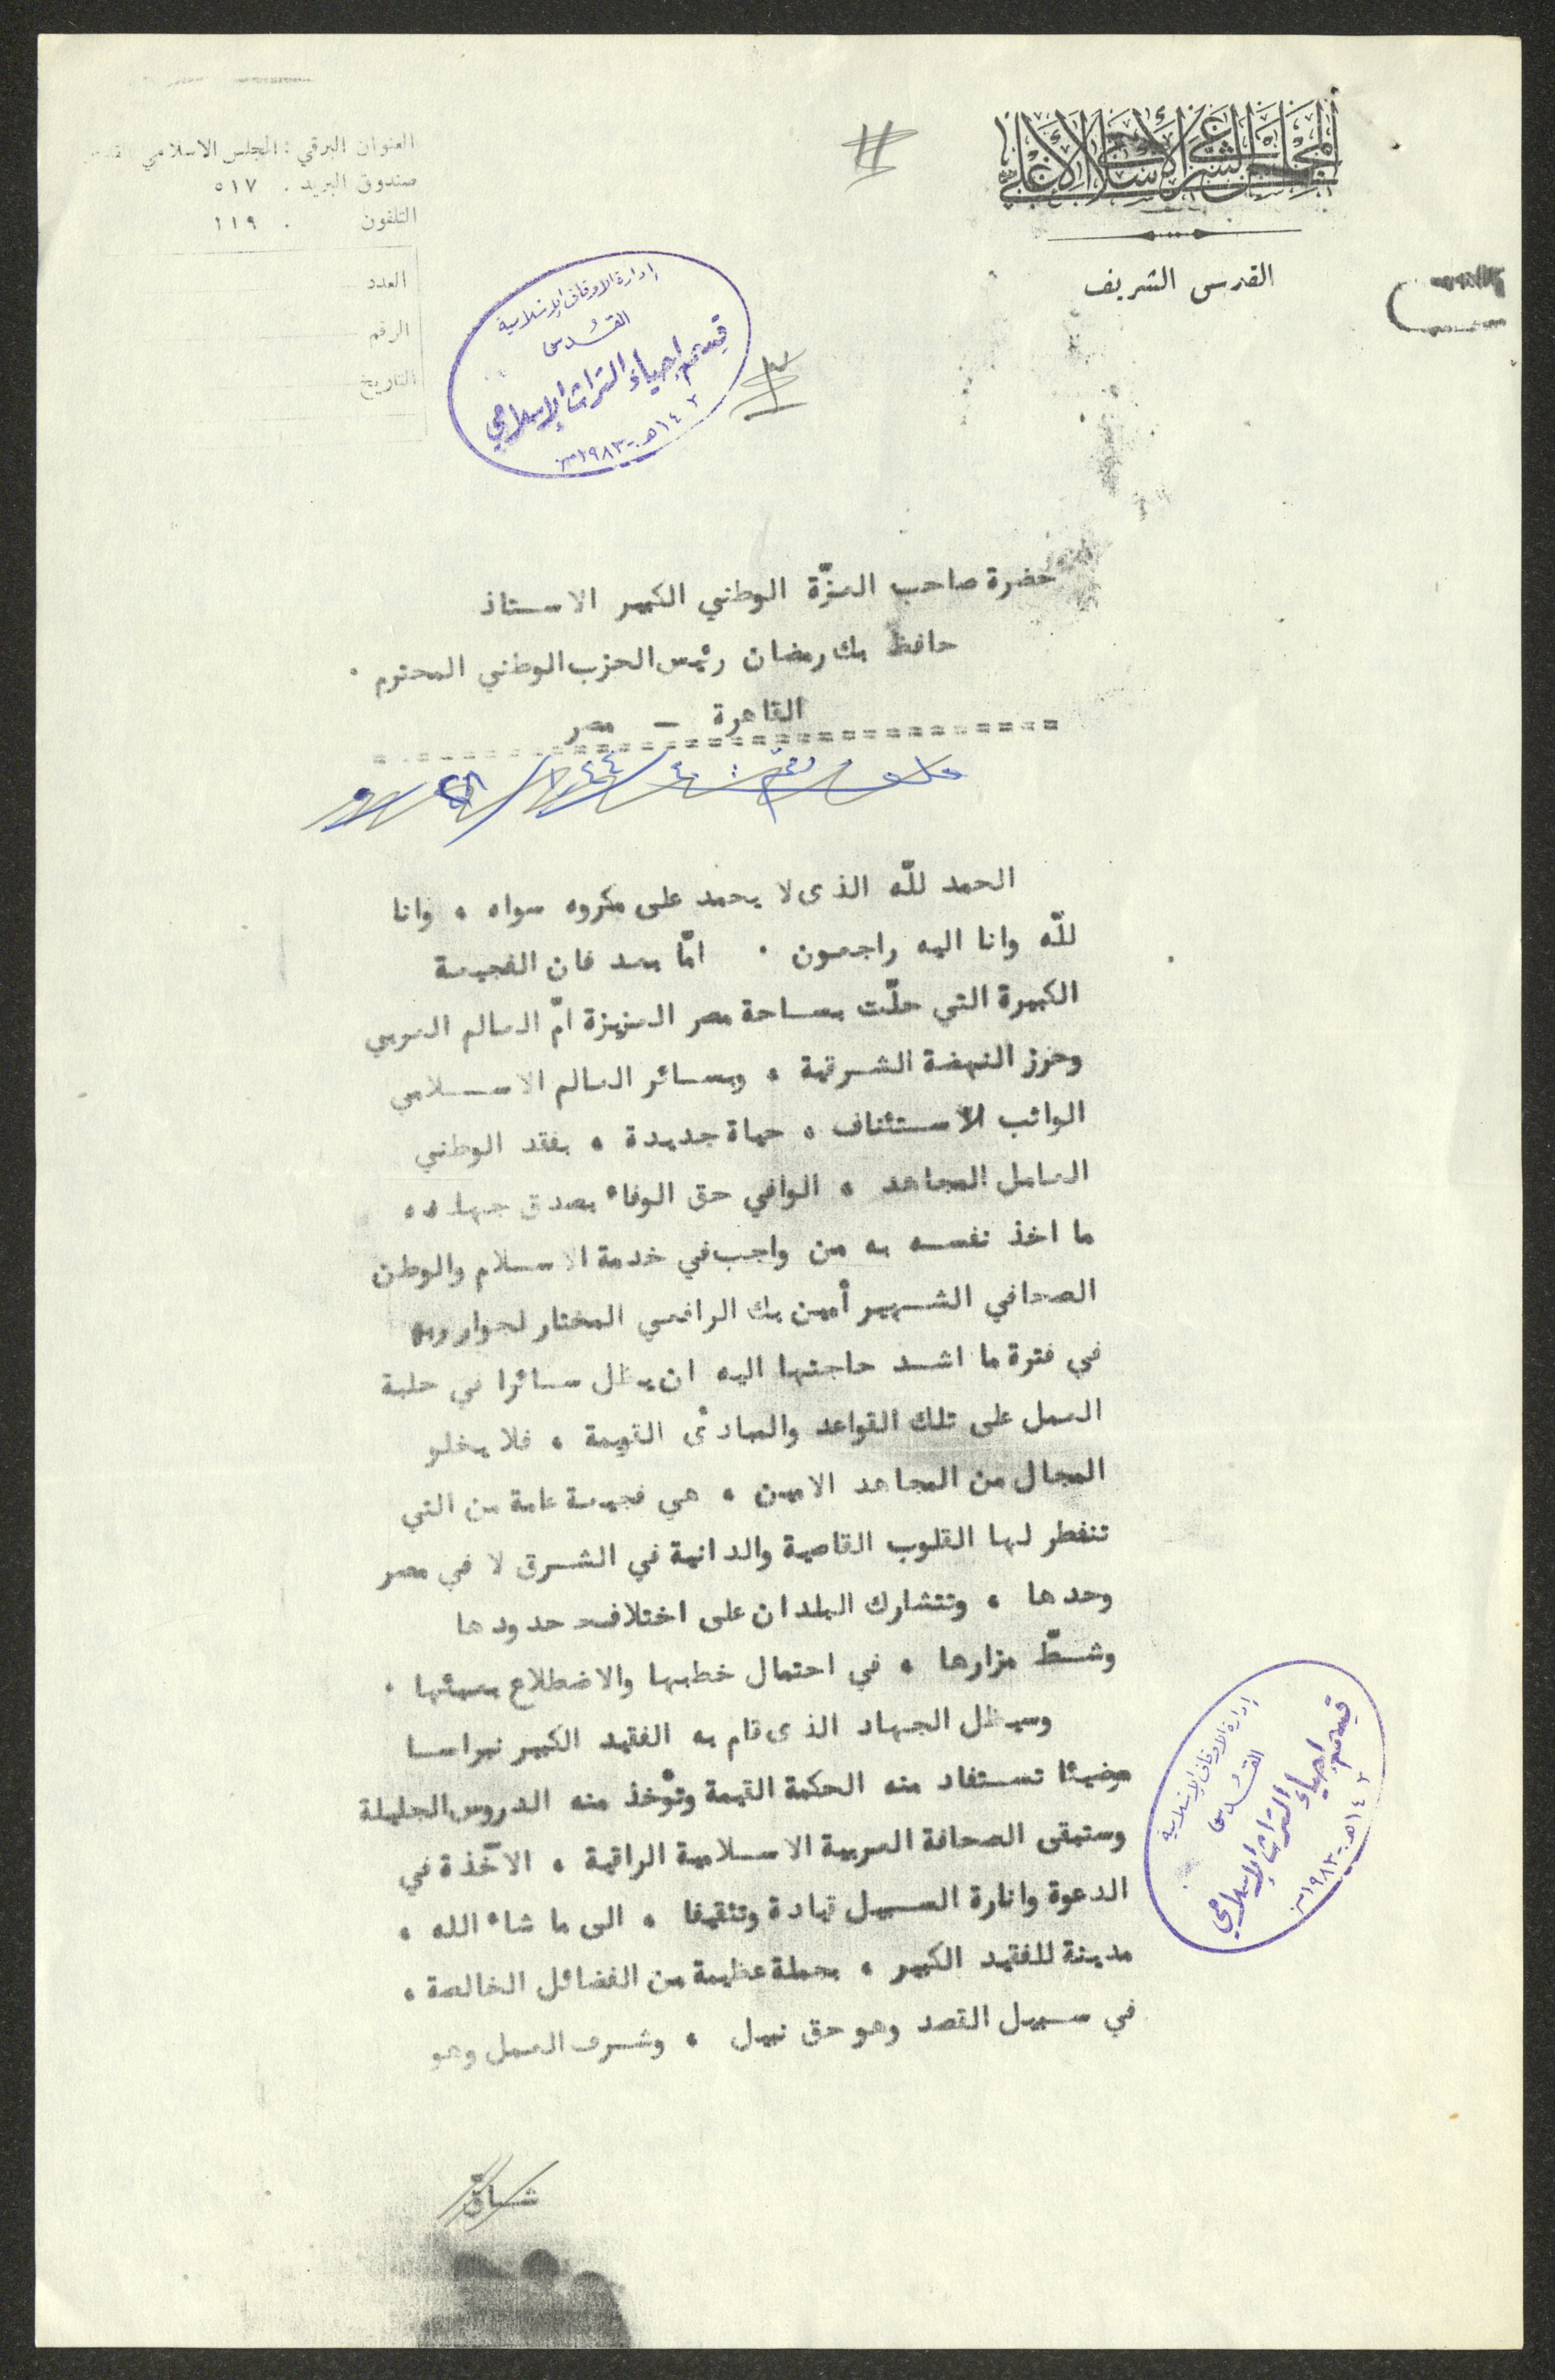 المجلس الشرعي الإسلامي الأعلى
القدس الشريف
العنوان البرقي : المجلس الاسلامي القدس
صندوق البريد . ٥١٧
التلفون . ١١٩
العدد
الرقم
التاريخ
إدارة الاوقاف الإسلامية
القدس
قسم إحياء التراث الإسلامي
١٤٠٣هـ - ١٩٨٣م
حضرة صاحب العزّة الوطني الكبير الاستاذ
حافظ بك رمضان رئيس الحزب الوطني المحترم ٠
القاهرة — مصر
الحمد للّه الذى لا يحمد على مكروه سواه ، وانا
للّه وانا اليه راجعون ٠ امّا بعد فان الفجيعة
الكبيرة التي حلّت بساحة مصر العزيزة امّ العالم العربي
وحرز النهضة الشرقية ، وبسائر العالم الاسلامي
الواثب للاستئناف ، حياة جديدة ، بفقد الوطني
العامل المجاهد ، الوافي حق الوفاء بصدق جهاده
ما اخذ نفسه به من واجب في خدمة الاسلام والوطن
الصحافي الشهير أمين بك الرافعي المختار لجوار ربه
في فترة ما اشد حاجتها اليه ان يظل سائرا في حلبة
العمل على تلك القواعد والمبادئ القويمة ، فلا يخلو
المجال من المجاهد الامين ، هي فجيعة عامة من التي
تنفطر لها القلوب القاصية والدانية في الشرق لا في مصر
وحدها ، وتتشارك البلدان على اختلاف حدودها
وشطّ مزارها ، في احتمال خطبها والاضطلاع بعبئها ٠
وسيظل الجهاد الذى قام به الفقيد الكبير نبراسا
مضيئا تستفاد منه الحكمة القيمة وتؤخذ منه الدروس الجليلة
وستبقى الصحافة العربية الاسلامية الراقية ، الآخذة في
الدعوة وانارة السبيل قيادة وتثقيفا ، الى ما شاء الله ،
مدينة للفقيد الكبير ، بحملة عظيمة من الفضائل الخالصة ،
في سبيل القصد وهو حق نبيل ، وشرف العمل وهو
إدارة الاوقاف الإسلامية
القدس
قسم إحياء التراث الإسلامي
١٤٠٣هـ - ١٩٨٣م
شاق